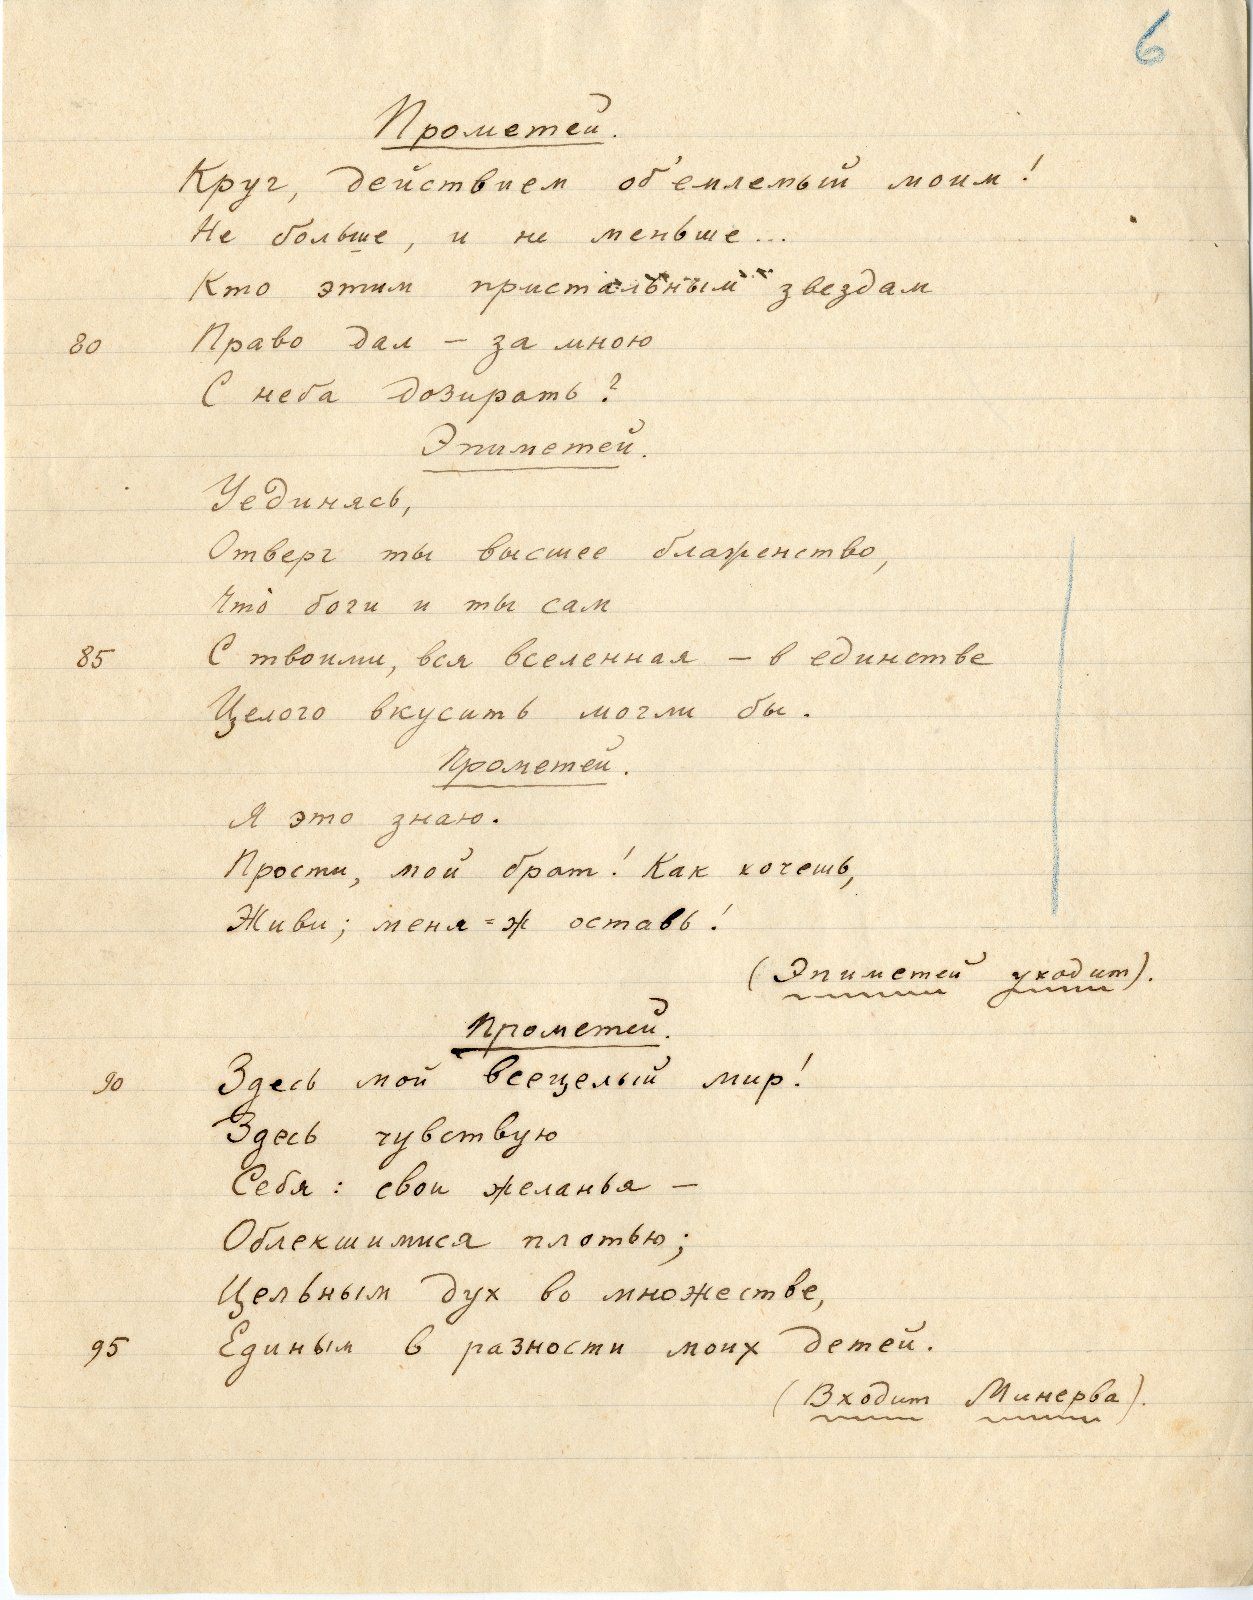 6
Прометей.
Круг, действием об'емлемый моим!
Не больше, и не меньше...
Кто этим пристальным звездам
80 Право дал — за мною
С неба дозирать?
Эпиметей.
Уединясь,
Отверг ты высшее блаженство,
Что боги и ты сам
85 С твоими, вся вселенная — в единстве
Целого вкусить могли бы.
Прометей.
Я это знаю.
Прости, мой брат! Как хочешь,
Живи; меня=ж оставь!
(Эпиметей уходит).
Прометей.
90 Здесь мой всецелый мир!
Здесь чувствую
Себя: свои желанья —
Облекшимися плотью;
Цельным дух во множестве,
95 Единым в разности моих детей.
(Входит Минерва).